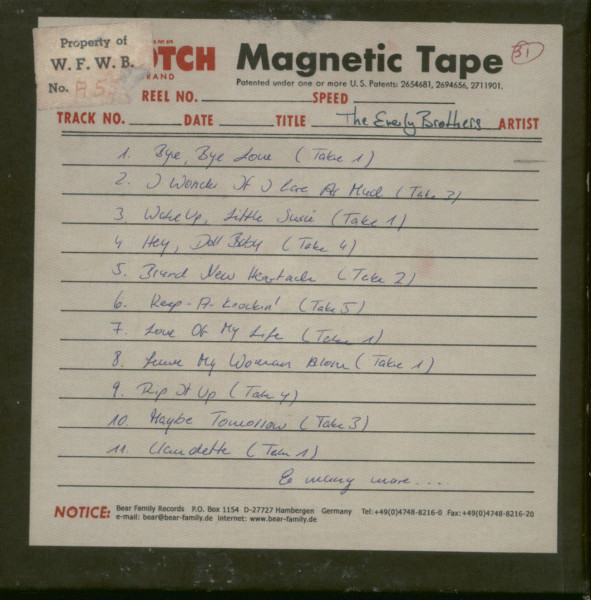 Property of
W. F. W. B.
No. A 55
OTCH Magnetic Tape 31
RAND
Patented under one or more U.S. Patents: 2654681, 2694656, 2711901.
REEL NO. SPEED
TRACK NO. DATE TITLE The Everly Brothers ARTIST
1. Bye, Bye Love (Take 1)
2. I Wonder If I Care As Much (Take 2)
3. Wake Up, Little Susie (Take 1)
4 Hey, Doll Baby (Take 4)
5. Brand New Heartache (Take 2)
6. Keep-A-Knockin' (Take 5)
7. Love Of My Life (Take 1)
8. Leave My Woman Alone (Take 1)
9. Rip It Up (Take 4)
10. Maybe Tomorrow (Take 3)
11. Claudette (Take 1)
& many more....
NOTICE: Bear Family Records P.O. Box 1154 D-27727 Hambergen Germany Tel:+49(0)4748-8216-0 Fax:+49(0)4748-8216-20
e-mail: bear@bear-family.de internet: www.bear-family.de